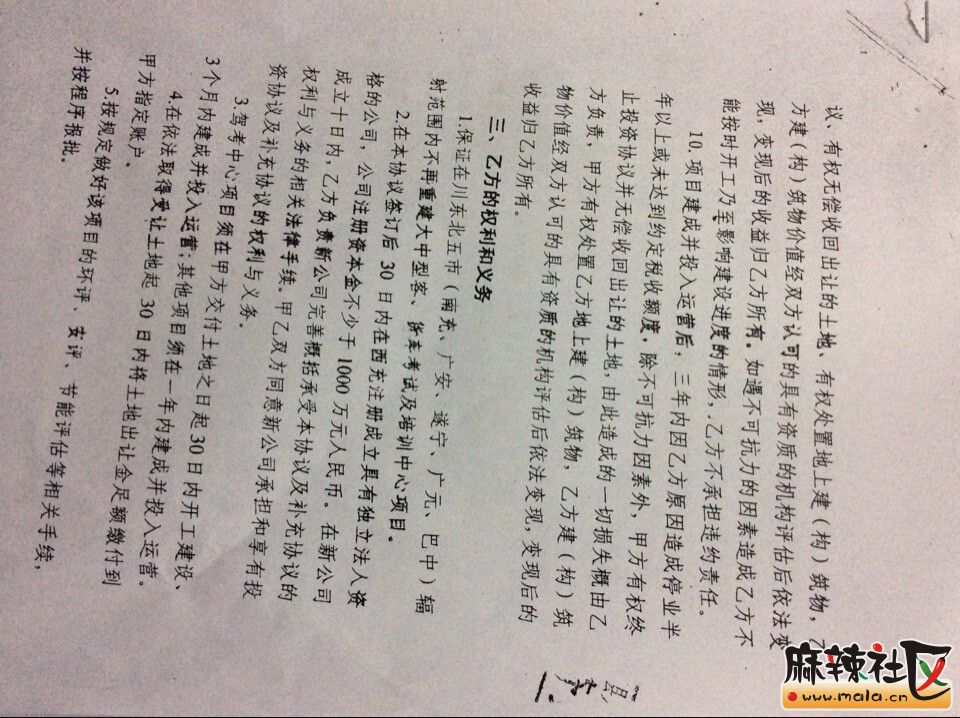 议、有权无偿收回出让的土地、有权处置地上建（构）筑物，乙
方建（构）筑物价值经双方认可的具有资质的机构评估后依法变
现，变现后的收益归乙方所有。如遇不可抗力的因素造成乙方不
能按时开工乃至影响建设进度的情形，乙方不承担违约责任。
10.项目建成并投入运营后，三年内因乙方原因造成停业半
年以上或未达到约定税收额度。除不可抗力因素外，甲方有权终
止投资协议并无偿收回出让的土地，由此造成的一切损失概由乙
方负责，甲方有权处置乙方地上建（构）筑物，乙方建（构）筑
物价值经双方认可的具有资质的机构评估后依法变现，变现后的
收益归乙方所有。
三、乙方的权利和义务
1.保证在川东北五市（南充、广安、遂宁、广元、巴中）辐
射范围内不再重建大中型客、货车考试及培训中心项目。
2.在本协议签订后 30 日内在西充注册成立具有独立法人资
格的公司，公司注册资本金不少于 1000 万元人民币。在新公司
成立十日内，乙方负责新公司完善概括承受本协议及补充协议的
权利与义务的相关法律手续，甲乙双方同意新公司承担和享有投
资协议及补充协议的权利与义务。
3.驾考中心项目须在甲方交付土地之日起30日内开工建设、
3个月内建成并投入运营；其他项目须在一年内建成并投入运营。
4.在依法取得受让土地起 30 日内将土地出让金足额缴付到
甲方指定账户。
5.按规定做好该项目的环评、安评、节能评估等相关手续，
并按程序报批。
麻辣社区
www.mala.cn